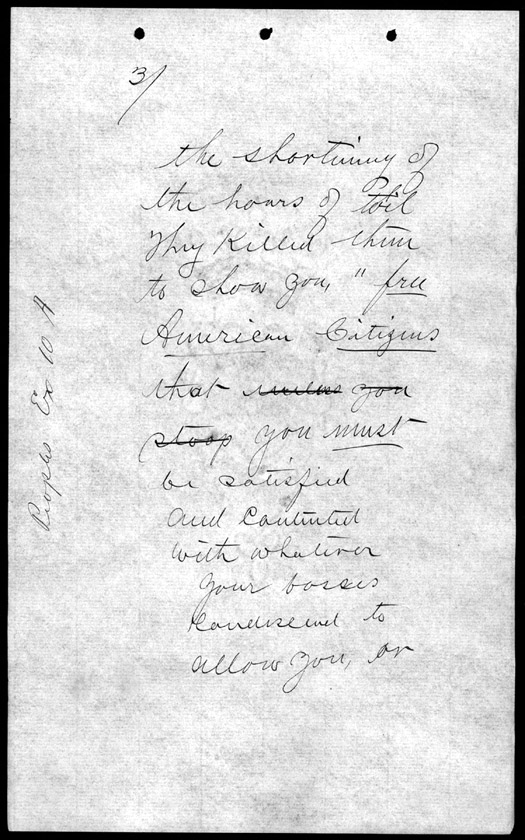 3/
the shortining of
the hours of toil
They Killed them
to show you, " free
American Citizens
that unless you
stoop you must
be satisfied
and Contented
with whatever
your bosses
Condescend to
allow you, or
Peoples Ex 10 A